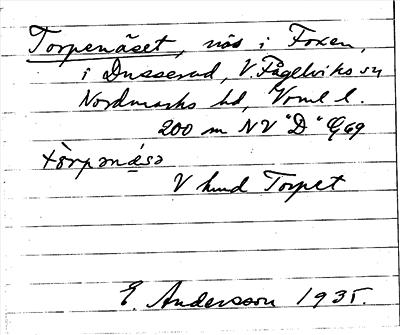 Torpenäset, näs i Foxen,
i Dusserud, V. Fågelviks sn
Nordmarks hd, Verml l.
200 m NV "D" G69
tòrpənǽsə
V hmd Torpet
E. Andersson 1935.